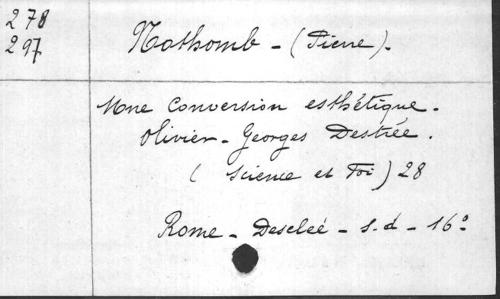 278
297
Nothomb - (Pierre).
Une Conversion esthétique.
Olivier - Georges Destrée.
( Science et Foi ) 28
Rome - Desclée - s. d - 16°